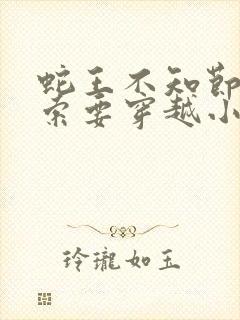 蛇王不知节
索要穿越小
玲瓏如玉